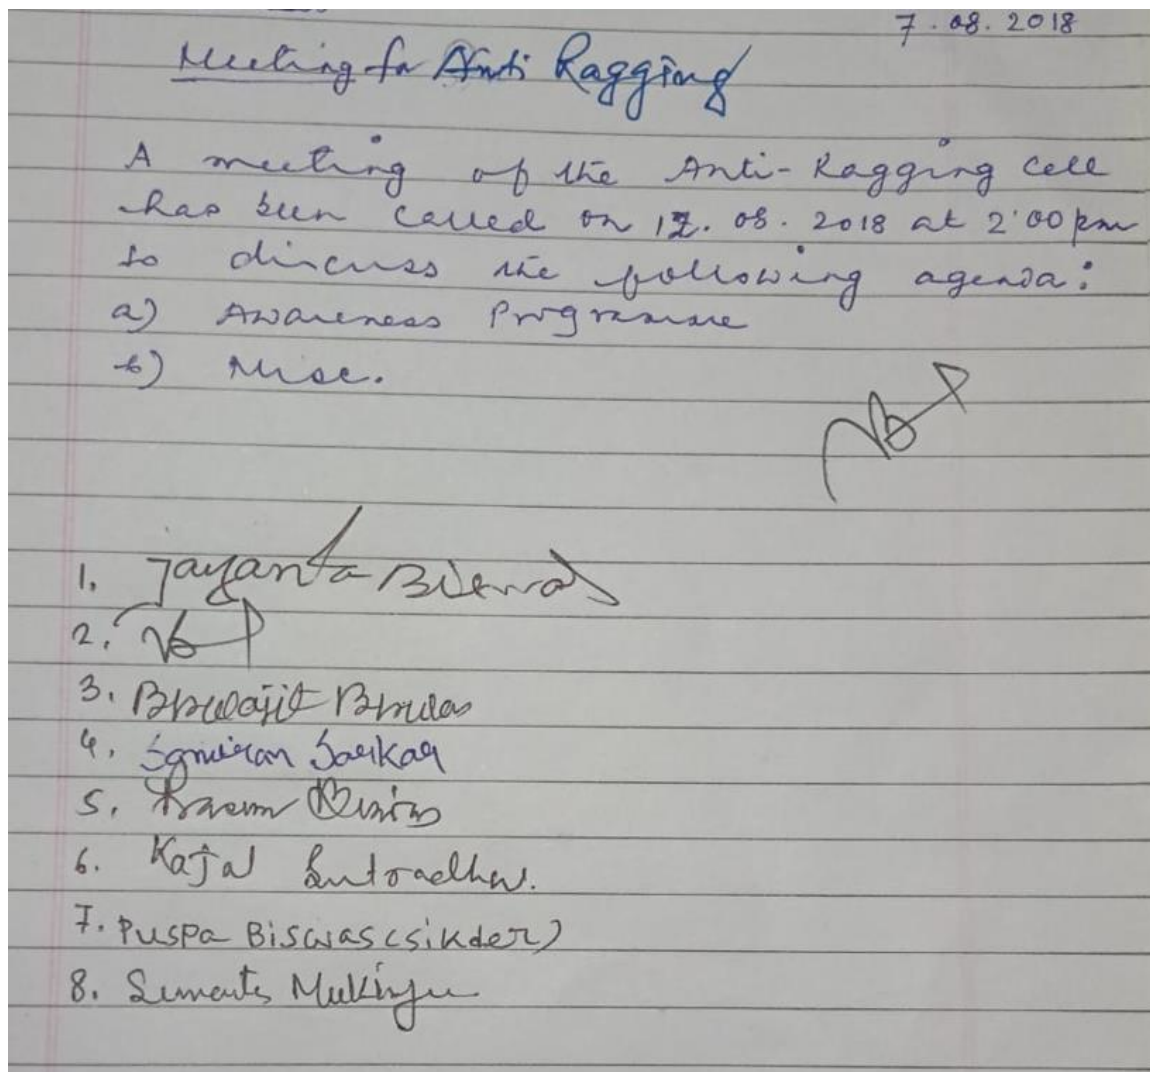 7.08.2018
Meeting for Anti Ragging
A meeting of the Anti-Ragging Cell
has been called on 12.08.2018 at 2:00 pm
to discuss the following agenda:
a) Awareness Programme
b) Misc.
1. Jayanta Biswas
2.
3. Biswajit Biswas
4. Samiran Sarkar
5.
6. Kajal Sutradhar.
7. Puspa Biswas (sikder)
8. Mukherjee